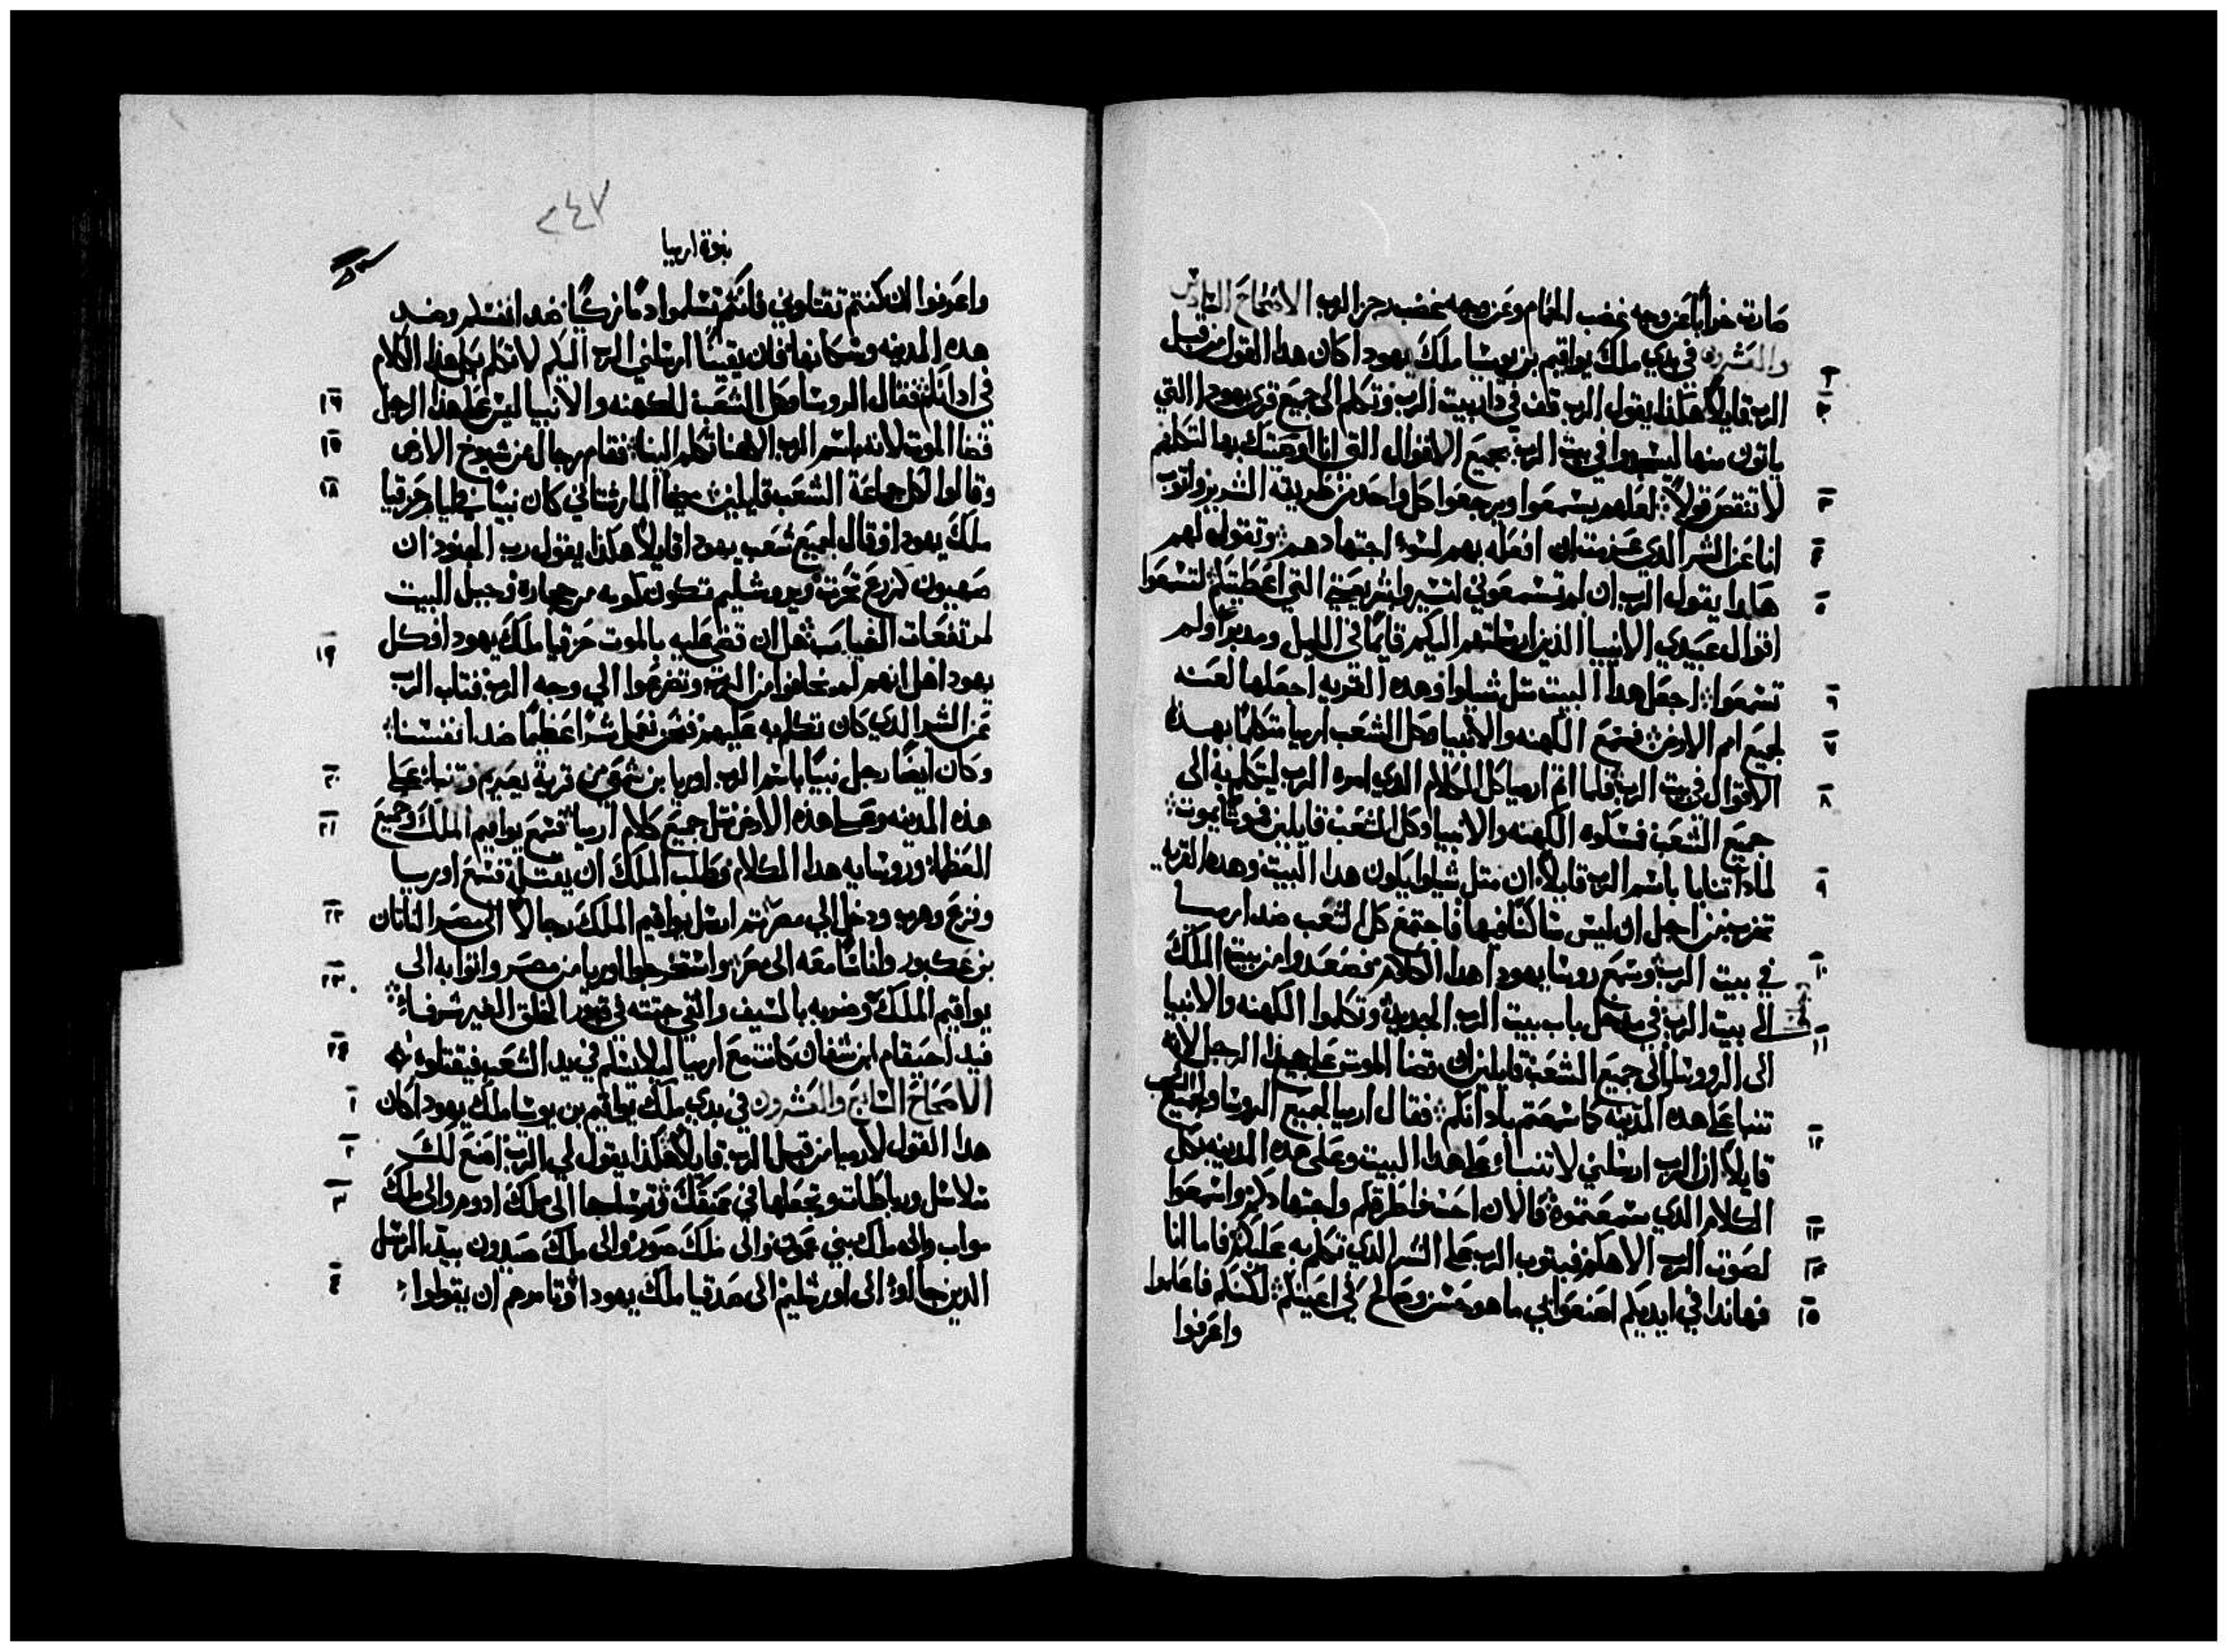 صارت خرابًا عن وجه غضب الحمام وعن وجه غضب رجز الرب الاصحاح السادس
والعشرون في بدي ملك يواقيم بن يوشيا ملك يهودا كان هدا القول من قبل
الرب قايلاً هكذا يقول الرب قف في دار بيت الرب وتكلم الى جميع قرى يهودا التي
ياتون منها ليسجدوا في بيت الرب بجميع الاقوال التي انا اوصيتك بها لتكلمهم
لا تنقص قولاً لعلهم يسمعوا ويرجعوا كل واحد من طريقه الشرير واتوب
انا عن الشر الدي عزمت ان افعله بهم لسوء اجتهادهم وتقول لهم
هكدا يقول الرب ان لم تسمعوني لتسيروا بشريعتي التي اعطيتكم لتسمعوا
اقوال عبيدي الانبيا الذين ارسلتهم اليكم قايمًا في الليل ومدبرًا ولم
تسمعوا اجعل هدا البيت متل شيلوا وهده القريه اجعلها لعنه
لجميع امم الارض فسمع الكهنه والانبيا وكل الشعب ارميا متكلمًا بهده
الاقوال في بيت الرب فلما اتم ارميا كل الكلام الدي امره الرب ليتكلم به الى
جميع الشعب فمسكوه الكهنه والانبيا وكل الشعب قايلين فموتًا يموت
لمادا تنبا باسم الرب قايلاً ان متل شيلوا يكون هدا البيت وهده القريه
تخرب من اجل ان ليس ساكنًا فيها فاجتمع كل الشعب ضد ارميا
في بيت الرب وسمع روسا يهودا هدا الكلام فصعدوا من بيت الملك
الى بيت الرب في مدخل باب بيت الرب الجديد وتكلموا الكهنه والانبيا
الى الروسا والى جميع الشعب قايلين ان قضا الموت على هدا الرجل لانه
تنبا على هده المدينه كما سمعتم بادانكم فقال ارميا لجميع الروسا ولجميع الشعب
قايلاً ان الرب ارسلني لاتنبا على هدا البيت وعلى هده المدينه بكل
الكلام الدي سمعتموه فالان احسنوا طرقكم واجتهادكم واسمعوا
لصوت الرب الاهكم فيتوب الرب على الشر الدي تكلم به عليكم فاما انا
فهاندا في ايديكم اصنعوا بي ما هو حسن وصالح في اعينكم لكنكم فاعلموا
واعرفوا
٢٤٧
نبوة ارميا
واعرفوا ان كنتم تقتلوني فانكم تسلموا دمًا زكيًا ضد انفسكم وضد
هده المدينه وسكانها فان يقينًا ارسلني الرب اليكم لاتكلم بكل هدا الكلام
في ادانكم فقال الروسا وكل الشعب للكهنه والانبيا ليس على هدا الرجل
قضا الموت لانه باسم الرب الاهنا تكلم الينا فقام رجال من شيوخ الارض
وقالوا لكل جماعة الشعب قايلين ميخا المارشتاني كان نبيًا في ايام حزقيا
ملك يهودا وقال لجميع شعب يهودا قايلاً هكذا يقول رب الجنود ان
صهيون كزرع تحرث ويروشليم تكون ككومه من حجاره وجبل البيت
لمرتفعات الغياب هل ان قضى عليه بالموت حزقيا ملك يهودا وكل
يهودا هل انهم لم يخافوا من الرب وتضرعوا الي وجه الرب فتاب الرب
عن الشر الدي كان تكلم به عليهم فنحن نعمل شرًا عظيمًا ضد انفسنا
وكان ايضًا رجل نبيًا باسم الرب اوريا بن شمعي من قرية يعيريم وتنبا على
هذه المدينه وعلى هذه الارض متل جميع كلام ارميا فسمع يواقيم الملك وجميع
العظما وروسايه هدا الكلام فطلب الملك ان يقتله فسمع اوريا
وفزع وهرب ودخل الي مصر تم ارسل يواقيم الملك رجالاً الى مصر الناتان
بن عكبور واناسًا معه الى مصر واستخرجوا اوريا من مصر واتوا به الى
يواقيم الملك وضربه بالسيف والقي جتته في قبور الخلق الغير شرفاء
فيد احيقام ابن شفان كانت مع ارميا ليلا يسلم في يد الشعب فيقتلوه
الاصحاح السابع والعشرون في بدي ملك يواقيم بن يوشيا ملك يهودا كان
هدا القول لارميا من قبل الرب قايلاً هكذا يقول لي الرب اصنع لك
سلاسل ورباطات وتجعلها في عنقك وترسلها الى ملك ادوم والى ملك
مواب والى ملك بني عمون والى ملك صور والى ملك صيدون بيد الرسل
الدين جااوا الى اورشليم الى صدقيا ملك يهودا وتامرهم ان يقولوا